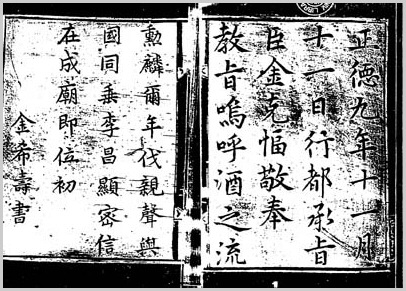 正德九年十一月
十一日行都承旨
臣金克愊敬奉
敎旨嗚呼酒之流
勳麟爾年代親聲與
國同垂李昌顯密信
在成廟即位初
金希壽書